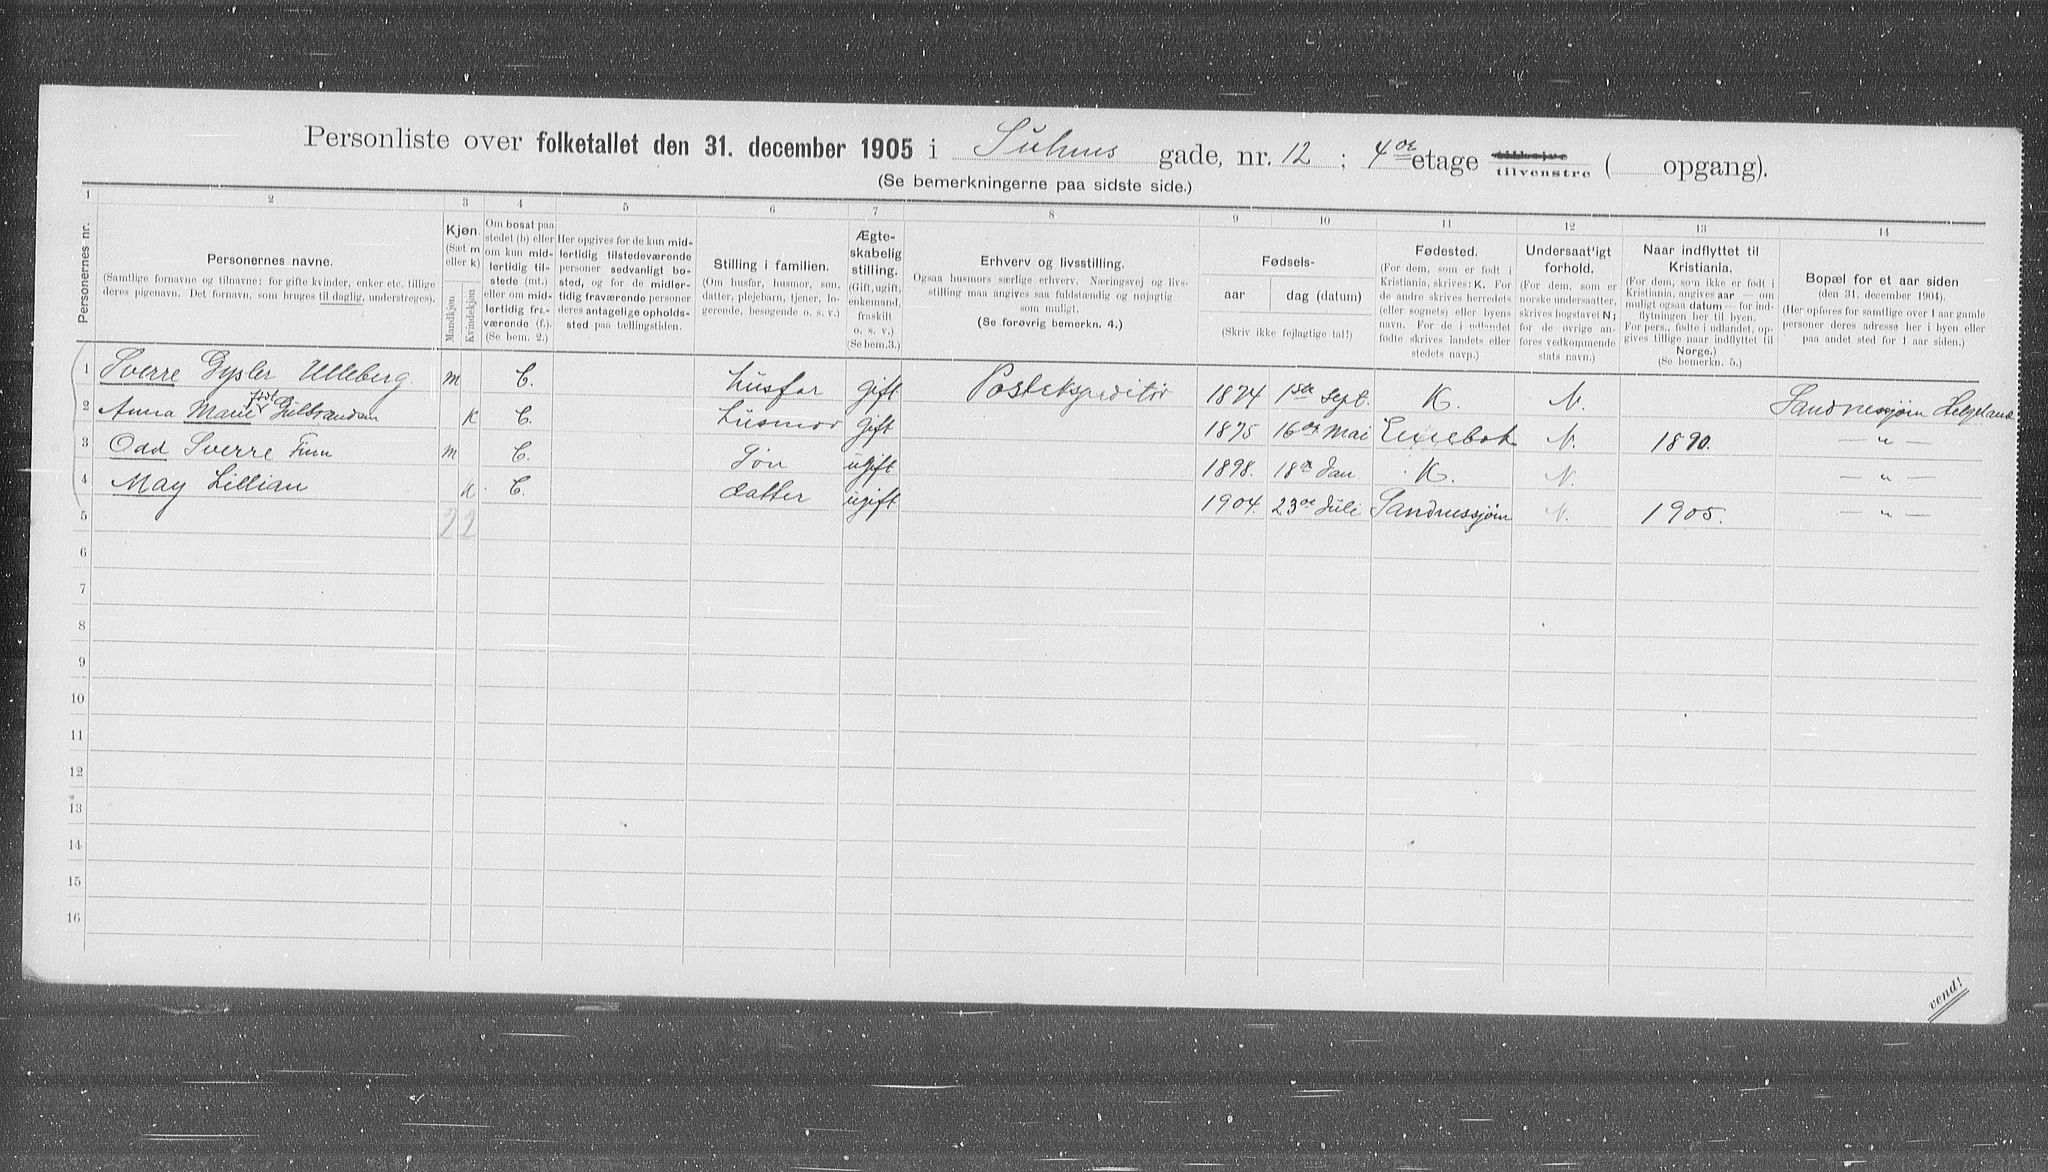 Personliste over folketallet den 31. december 1905 i Suhms gade, nr. 12 ; 4de etage tilhøire tilvenstre ( opgang).
(Se bemerkningerne paa sidste side.)
1 2 3 4 5 6 7 8 9 10 11 12 13 14
Personernes nr.
Personernes navne.
(Samtlige fornavne og tilnavne; for gifte kvinder, enker etc. tillige
deres pigenavn. Det fornavn, som bruges til daglig, understreges).
Kjøn
(Sæt m
eller k)
Mandkjøn
Kvindekjøn
Om bosat paa
stedet (b) eller
om kun mid-
lertidig til-
stede (mt.)
eller om mid-
lertidig fra-
værende (f.)
(Se bem. 2.)
Her opgives for de kun mid-
lertidig tilstedeværende
personer sedvanligt bo-
sted, og for de midler-
tidig fraværende personer
deres antagelige opholds-
sted paa tællingstiden.
Stilling i familien.
(Om husfar, husmor, søn,
datter, plejebarn, tjener, lo-
gerende, besøgende o. s. v.)
Ægte-
skabelig
stilling.
(Gift, ugift,
enkemand,
fraskilt
o. s. v.)
(Se bem.3.)
Erhverv og livsstilling.
Ogsaa husmors særlige erhverv. Næringsvej og livs-
stilling maa angives saa fuldstændig og nøjagtig
som muligt.
(Se forøvrig bemerkn. 4.)
Fødsels-
aar dag (datum)
(Skriv ikke fejlagtige tal!)
Fødested.
(For dem, som er født i
Kristiania, skrives: K. For
de andre skrives herredets
(eller sognets) eller byens
navn. For de i udlandet
fødte skrives landets eller
stedets navn.)
Undersaat'igt
forhold.
(For dem, som er
norske undersaatter,
skrives bogstavet N;
for de øvrige an-
føres vedkommende
stats navn.)
Naar indflyttet til
Kristiania.
(For dem, som ikke er født i
Kristiania, angives aar — om
muligt ogsaa datum — for ind-
flytningen her til byen.
For pers., fødte i udlandet, op-
gives tillige naar indflyttet til
Norge.)
(Se bemerkn. 5.)
Bopæl for et aar siden
(den 31. december 1904).
(Her opføres for samtlige over 1 aar gamle
personer deres adresse her i byen eller
paa andet sted for 1 aar siden.)
1 Sverre Gysler Ulleberg. m b. husfar gift Postekspeditør 1874 15de sept. K. N. Sandnessjøen Helgeland
2 Anna Marie født Gulbrandsen k b. husmor gift 1875 16de Mai Enebak N. 1890. — " —
3 Odd Sverre Finn m b. søn ugift 1898. 18de Jan. K. N. — " —
4 May Lillian k. b. datter ugift 1904. 23de Juli Sandnessjøen N. 1905. — " —
5 2 2
6
7
8
9
10
11
12
13
14
15
16
vend!